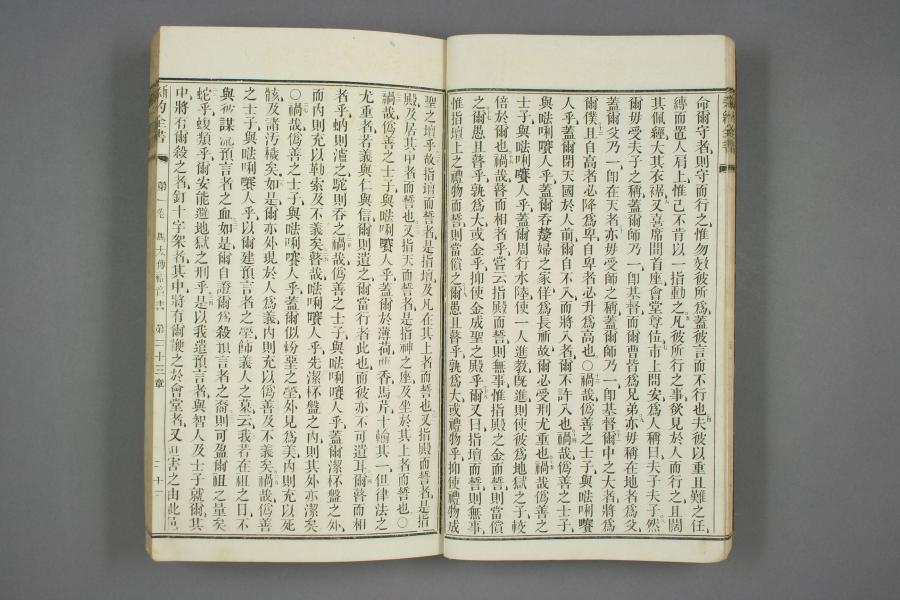 命爾守者、則守而行之、惟勿效彼所爲、蓋彼言而不行也、夫彼以重且難之任、
縛而置人肩上、惟己不肯以一指動之、凡彼所行之事、欲見於人而行之、且闊
其佩經、大其衣䙓、又喜席間首座、會堂尊位、市上問安、爲人稱曰夫子夫子、然
爾毋受夫子之稱、蓋爾師乃一、卽基督、而爾曹皆爲兄弟、亦毋稱在地者爲父、
蓋爾父乃一、卽在天者、亦毋受師之稱、蓋爾師乃一、卽基督、爾中之大者、將爲
爾僕、且自高者必降爲卑、自卑者必升爲高也、○禍哉、僞善之士子、與𠵽唎㘔
人乎、蓋爾閉天國於人前、爾自不入、而將入者爾不許入也、禍哉、僞善之士子、
與𠵽唎㘔人乎、蓋爾吞嫠婦之家、佯爲長祈、故爾必受刑尤重也、禍哉、僞善之
士子、與𠵽唎㘔人乎、蓋爾周行水陸、使一人進教、旣進、則使彼爲地獄之子、較
倍於爾也、禍哉、瞽而相者乎、嘗云、指殿而誓、則無事、惟指殿之金而誓、則當償
之、爾愚且瞽乎、孰爲大、或金乎、抑使金成聖之殿乎、爾又曰、指壇而誓、則無事、
惟指壇上之禮物而誓、則當償之、爾愚且瞽乎、孰爲大、或禮物乎、抑使禮物成
聖之壇乎、故指壇而誓者、是指壇及凡在其上者而誓也、又指殿而誓者、是指
殿及居其中者而誓也、又指天而誓者、是指神之座、及坐於其上者而誓也、○
禍哉、僞善之士子、與𠵽唎㘔人乎、蓋爾於薄荷、茴香、馬芹、十輸其一、但律法之
尤重者、若義與仁與信、爾則遺之、爾當行者此也、而彼亦不可遺耳、爾瞽而相
者乎、蚋則濾之、駝則吞之、禍哉、僞善之士子、與𠵽唎㘔人乎、蓋爾潔杯盤之外、
而內則充以勒索及不義矣、瞽哉、𠵽唎㘔人乎、先潔杯盤之內、則其外亦潔矣、
○禍哉、僞善之士子、與𠵽唎㘔人乎、蓋爾似粉堊之塋、外見爲美、內則充以死
骸及諸汚穢矣、如是爾亦外現於人爲義、內則充以僞善及不義矣、禍哉、僞善
之士子、與𠵽唎㘔人乎、以爾建預言者之塋、飾義人之墓、云、我若在祖之日、不
與彼謀流預言者之血、如是、爾自證爾爲殺預言者之裔、則可盈爾祖之量矣、
蛇乎、蝮類乎、爾安能避地獄之刑乎、是以我遣預言者與智人及士子就爾、其
中將有爾殺之者、釘十字架者、其中將有爾鞭之於會堂者、又迫害之由此邑、
新約全書
第一卷
馬太傳福音書
第二十三章